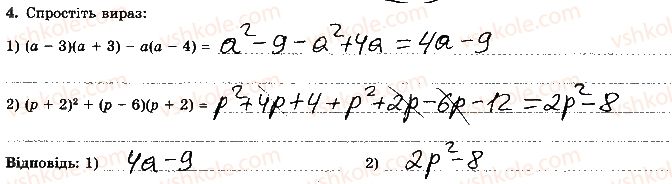 4. Спростіть вираз:
1) (a − 3)(a + 3) − a(a − 4) = a² − 9 − a² + 4a = 4a − 9
2) (p + 2)² + (p − 6)(p + 2) = p² + 4p + 4 + p² + 2p − 6p − 12 = 2p² − 8
Відповідь: 1) 4a − 9 2) 2p² − 8